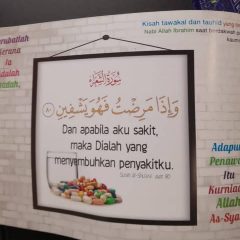 erubatlah
kerana
Ia
adalah
Kisah tawakal dan tauhid yang
Nabi Allah Ibrahim saat berdakwah
سُورَةُ الشُّعَرَاءِ
وَإِذَا مَرِضْتُ فَهُوَ يَشْفِينِ ﴿٨٠﴾
Dan apabila aku sakit,
maka Dialah yang
menyembuhkan penyakitku.
Surah al-Shu'ara' ayat 80
Adapu
Penawa
Itu
Kurniaa
Allah
As-Sya